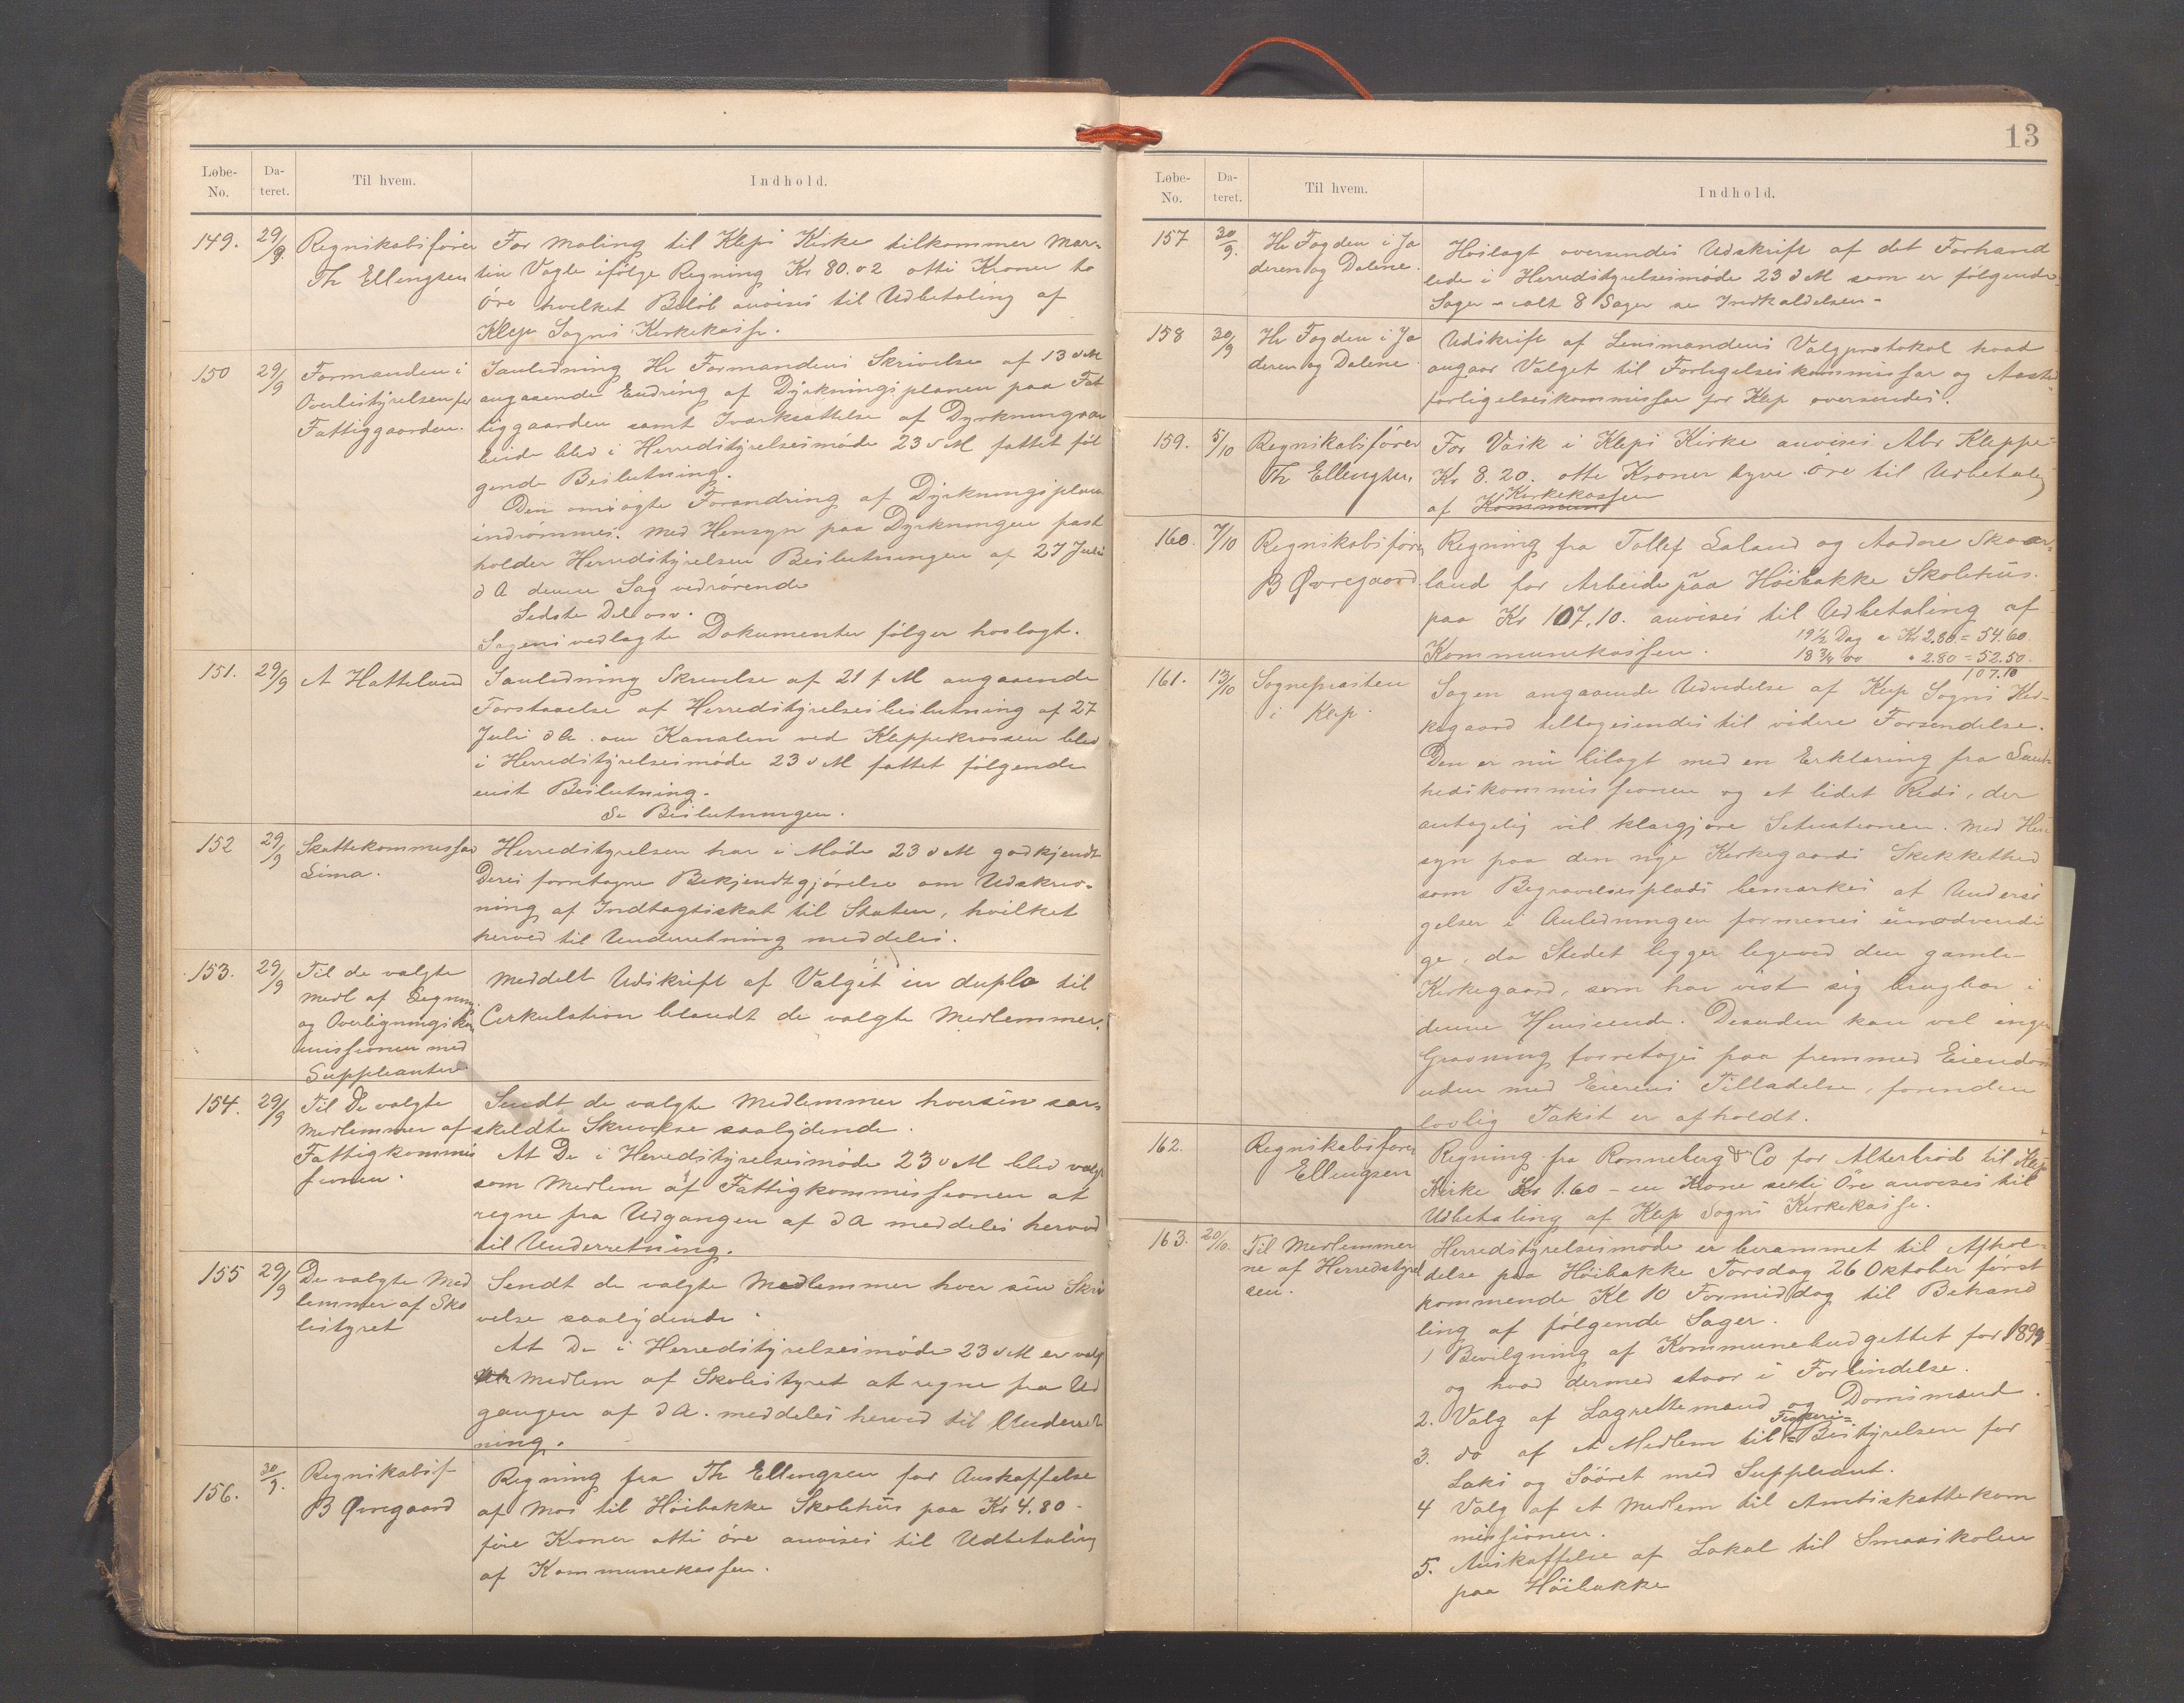 Løbe-No. Da-teret. Til hvem. Indhold.
149. 29/9. Regnskabsfører Th Ellengsen
For Maling til Kleps Kirke tilkommer Mar-
tin Vagle ifølge Regning Kr 80.02 otti Kroner to
Øre hvilket Beløb anvises til Udbetaling af
Klep Sogns Kirkekasse.
150 29/9 Formanden i Overbestyrelsen for Fattiggaarden.
I anledning Hr Formandens Skrivelse af 13 d M
angaaende Endring af Dyrkningsplanen paa Fat
tiggaarden samt Iverksættelse af Dyrkningsar
beide blev i Herredstyrelsesmøde 23 d M fattet føl
gende Beslutning.
Den omsøgte Forandring af Dyrkningsplan
indrømmes. Med Hensyn paa Dyrkningen fast
holder Herredstyrelsen Beslutningen af 27 Juli
d A denne Sag vedrørende
Sidste Del osv.
Sagens vedlagte Dokumenter følger hoslagt.
151. 29/9 A Hatteland
I anledning Skrivelse af 21 f M angaaende
Forstaaelse af Herredstyrelsesbeslutning af 27
Juli d A. om Kanalen ved Kleppekrossen blev
i Herredstyrelsesmøde 23 d M fattet følgende
enst Beslutning.
Se Beslutningen.
152 29/9 Skattekommissær Lima.
Herredstyrelsen har i Møde 23 d M godkjendt
Deres foretagne Bekjendtgjørelse om Udskriv-
ning af Indtægtsskat til Staten, hvilket
herved til Underretning meddeles.
153. 29/9 Til de valgte Medl af Ligning og Overligningskom missionen med Suppleanter
Meddelt Udskrift af Valget in duplo til
Cirkulation blandt de valgte Medlemmer.
154. 29/9 Til De valgte Medlemmer af Fattigkommis sionen.
Sendt de valgte Medlemmer hversin sær-
skildte Skrivelse saalydende.
At De i Herredstyrelsesmøde 23 d M blev valgt
som Medlem af Fattigkommissionen at
regne fra Udgangen af d A meddeles herved
til Underretning.
155 29/9 De valgte Med lemmer af Sko lestyret
Sendt de valgte Medlemmer hver sin Skri
velse saalydende.
At De i Herredstyrelsesmøde 23 d M er valgt
Medlem af Skolestyret at regne fra Ud
gangen af d A. meddeles herved til Underret
ning.
156. 30/9. Regnskabsf B Øvregaard
Regning fra Th Ellingsen for Anskaffelse
af Mos til Høibakke Skolehus paa Kr 4.80 -
fire Kroner otti Øre anvises til Udbetaling
af Kommunekassen.
13
Løbe-No. Da-teret. Til hvem. Indhold.
157 30/9. Hr Fogden i Ja deren og Dalene.
Hoslagt oversendes Udskrift af det Forhand
lede i Herredstyrelsesmøde 23 d M som er følgende
Sager - ialt 8 Sager se Indkaldelsen -
158 30/9 Hr Fogden i Ja deren og Dalene.
Udskrift af Lensmandens Valgprotokol hvad
angaar Valget til Forligelseskommissær og Aasted
forligelseskommissær for Klep oversendes.
159. 5/10 Regnskabsfører Th Ellengsen.
For Vask i Kleps Kirke anvises Abr Kleppe
Kr 8.20. otte Kroner tyve Øre til Udbetaling
af Kirkekassen
160. 7/10 Regnskabsfører B Øvregaard.
Regning fra Tollef Laland og Aadne Skaar-
land for Arbeide paa Høibakke Skolehus.
paa Kr 107.10. anvises til Udbetaling af
Kommunekassen.
19½ Dag a Kr 2.80 = 54.60.
18¾ do " 2.80 = 52.50.
107.10
161. 13/10 Sognepræsten i Klep.
Sagen angaaende Udvidelse af Klep Sogns Kir-
kegaard tilbagesendes til videre Forsendelse.
Den er nu bilagt med en Erklæring fra Sund-
hedskommissionen og et lidet Rids, der
antagelig vil klargjøre Situationen. Med Hen
syn paa den nye Kirkegaards Skikkethed
som Begravelsesplads bemærkes at Undersø
gelser i Anledningen formenes unødvendi
ge, da Stedet ligger ligeved den gamle
Kirkegaard, som har vist sig brugbar i
denne Henseende. Desuden kan vel ingen
Gravning foretages paa fremmed Eiendom
uden med Eierens Tilladelse, forinden
lovlig Takst er afholdt.
162. Regnskabsfører Ellingsen
Regning fra Rønneberg & Co for Alterbrød til Klep
Kirke Kr 1.60 - en Krone seksti Øre anvises til
Udbetaling af Klep Sogns Kirkekasse.
163. 20/10. Til Medlemmer ne af Herredstyrel sen.
Herredstyrelsesmøde er berammet til Afhol-
delse paa Høibakke Torsdag 26 Oktober først
kommende Kl 10 Formiddag til Behand
ling af følgende Sager.
1 Bevilgning af Kommunebudgettet for 1899
og hvad dermed staar i Forbindelse.
2. Valg af Lagrettemænd og Domsmænd.
3. do af et Medlem til Fiskeri=Bestyrelsen for
Laks og Søøret med Suppleant.
4 Valg af et Medlem til Amtsskattekom
missionen.
5. Anskaffelse af Lokal til Smaaskolen
paa Høibakke